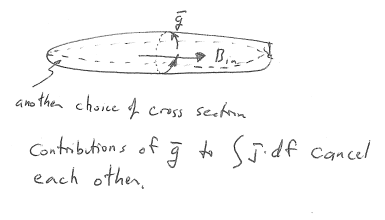 g̅
B_in
another choice of cross section
Contributions of g̅ to ∫ J̅·df cancel
each other.